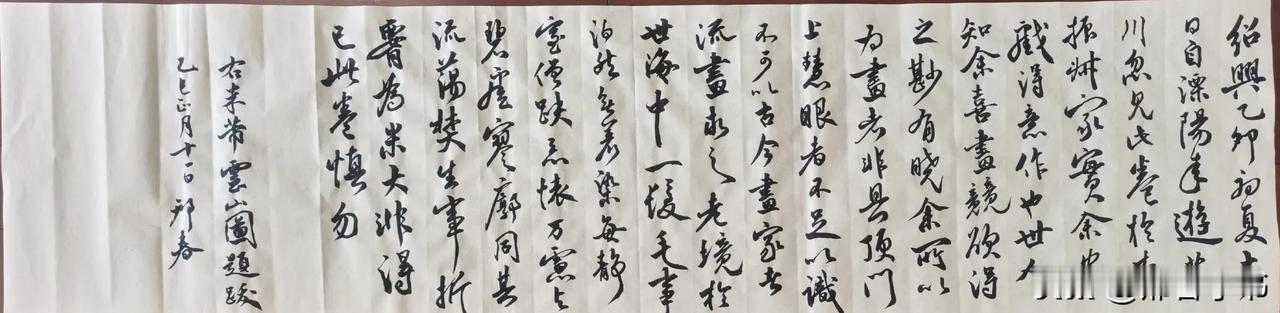 紹興乙卯初夏十
日自溧陽來遊
川忽見此卷於
振叔家實余
戲得意作也世人
知余喜畫競欲得
之尠有曉余所以
為畫者非具頂門
上慧眼者不足以識
不可以古今畫家者
流畫求之老境於
世海中一髮毛事
泊然無著染每靜
室僧趺忘懷万慮與
碧虛寥廓同其
流蕩焚生事折
腰為米大非得
已此卷慎勿
右米芾雲山圖題跋
乙巳正月十一日 邢春